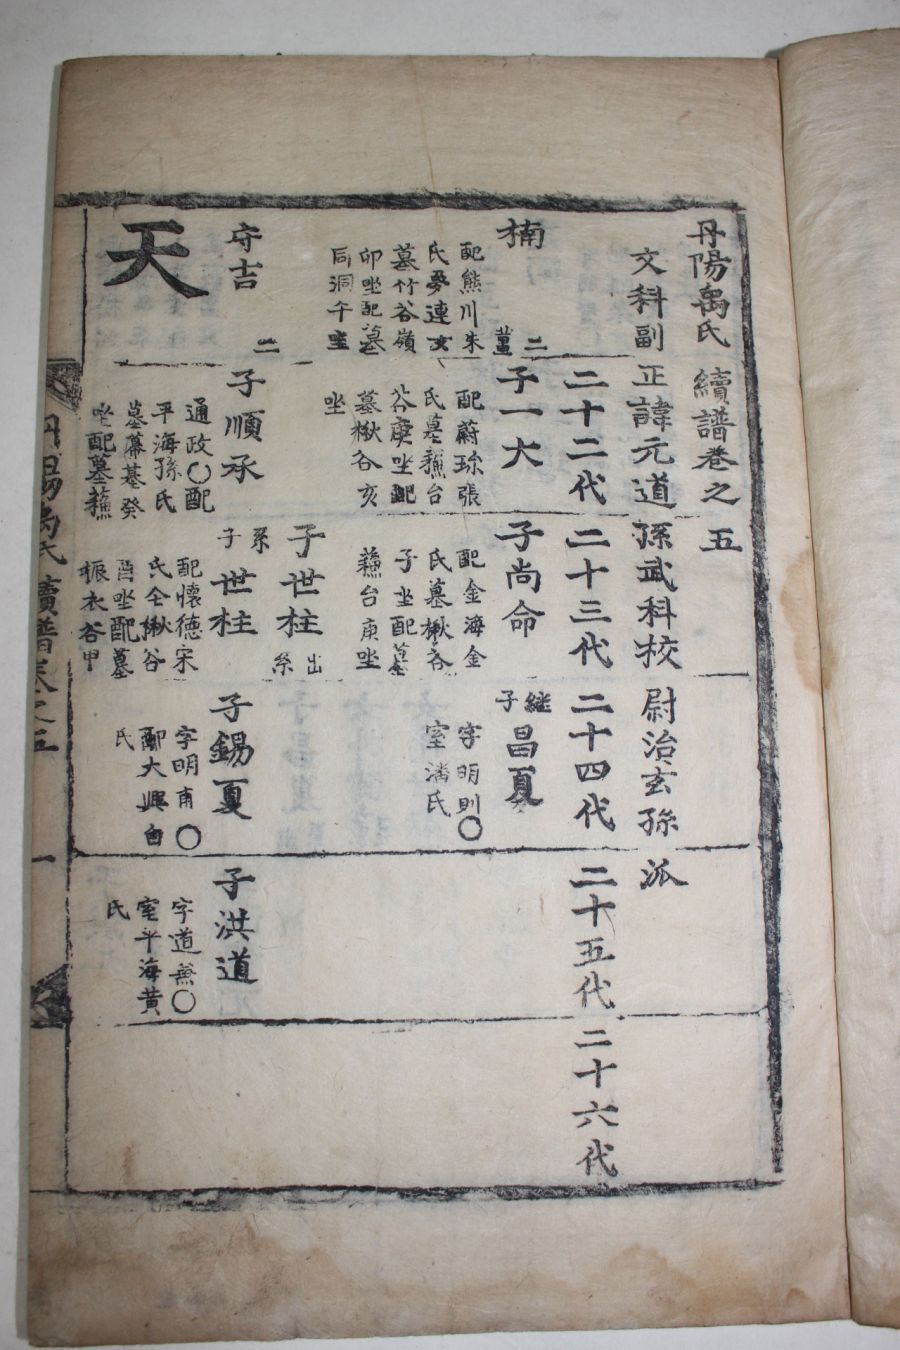 丹陽禹氏續譜卷之五
文科副正諱元道孫武科校尉治玄孫派
二十二代
二十三代
二十四代
二十五代
二十六代
楠
二
配熊川朱
氏夢連女
墓竹谷嶺
卯坐配墓
同洞午坐
子一大
配蔚珎張
氏墓蘓台
谷庚坐配
墓楸谷亥
坐
子尚命
配金海金
氏墓楸谷
子坐配墓
蘓台庚坐
継子昌夏
字明則〇
室潘氏
守吉
二
子順承
通政〇配
平海孫氏
墓幕墓癸
坐配墓蘓
子世柱
出系
系子世柱
配懷德宋
氏仝楸谷
酉坐配墓
振衣谷甲
子錫夏
字明甫〇
配大興白
氏
子洪道
字道兼〇
室平海黄
氏
天
丹陽禹氏續譜卷之五
一